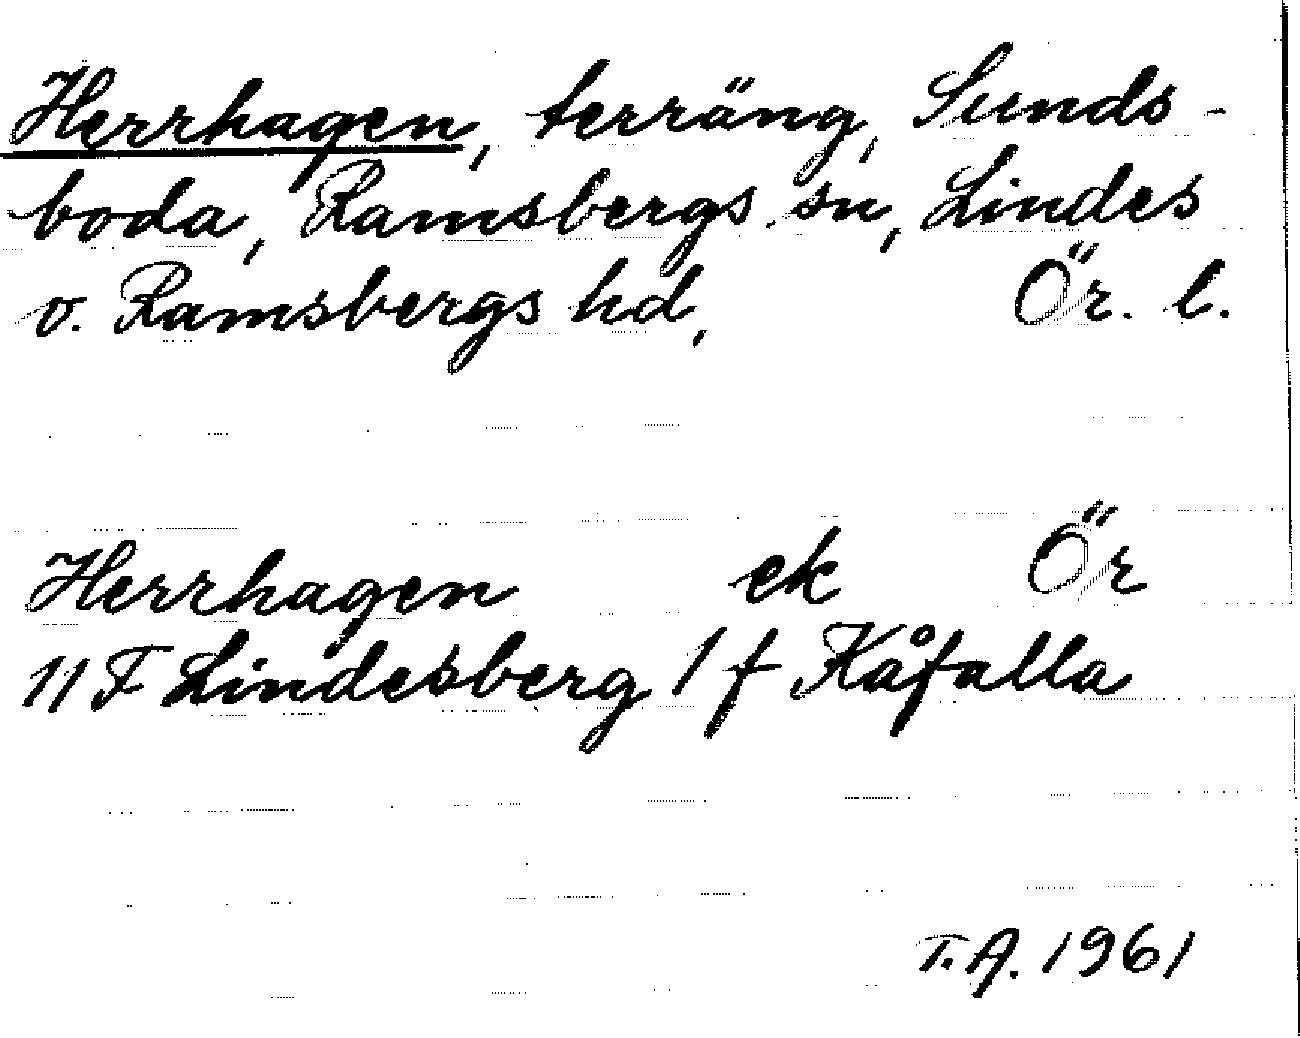 Herrhagen, terräng, Sunds-
boda, Ramsbergs sn, Lindes
o. Ramsbergs hd, Ör. l.
Herrhagen ek Ör
11 F Lindesberg 1 f Kåfalla
T.A. 1961